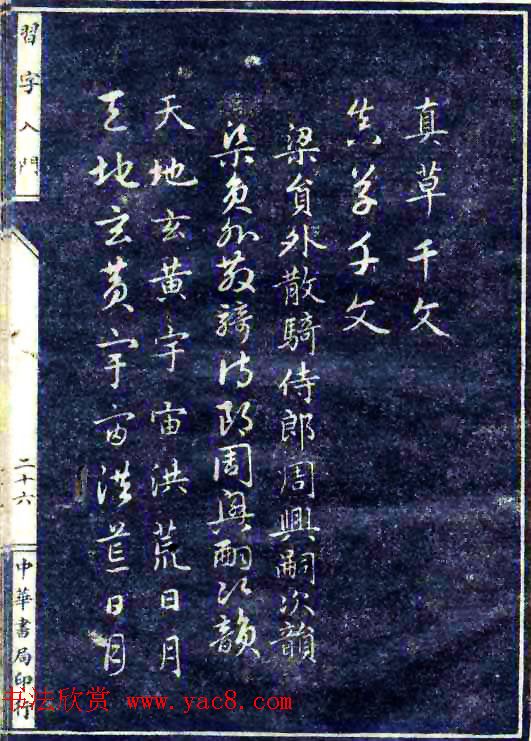 真草千文
真草千文
梁員外散騎侍郎周興嗣次韻
梁員外散騎侍郎周興嗣次韻
天地玄黃宇宙洪荒日月
天地玄黃宇宙洪荒日月
習字入門
二十六
中華書局印行
书法欣赏 www.yac8.com